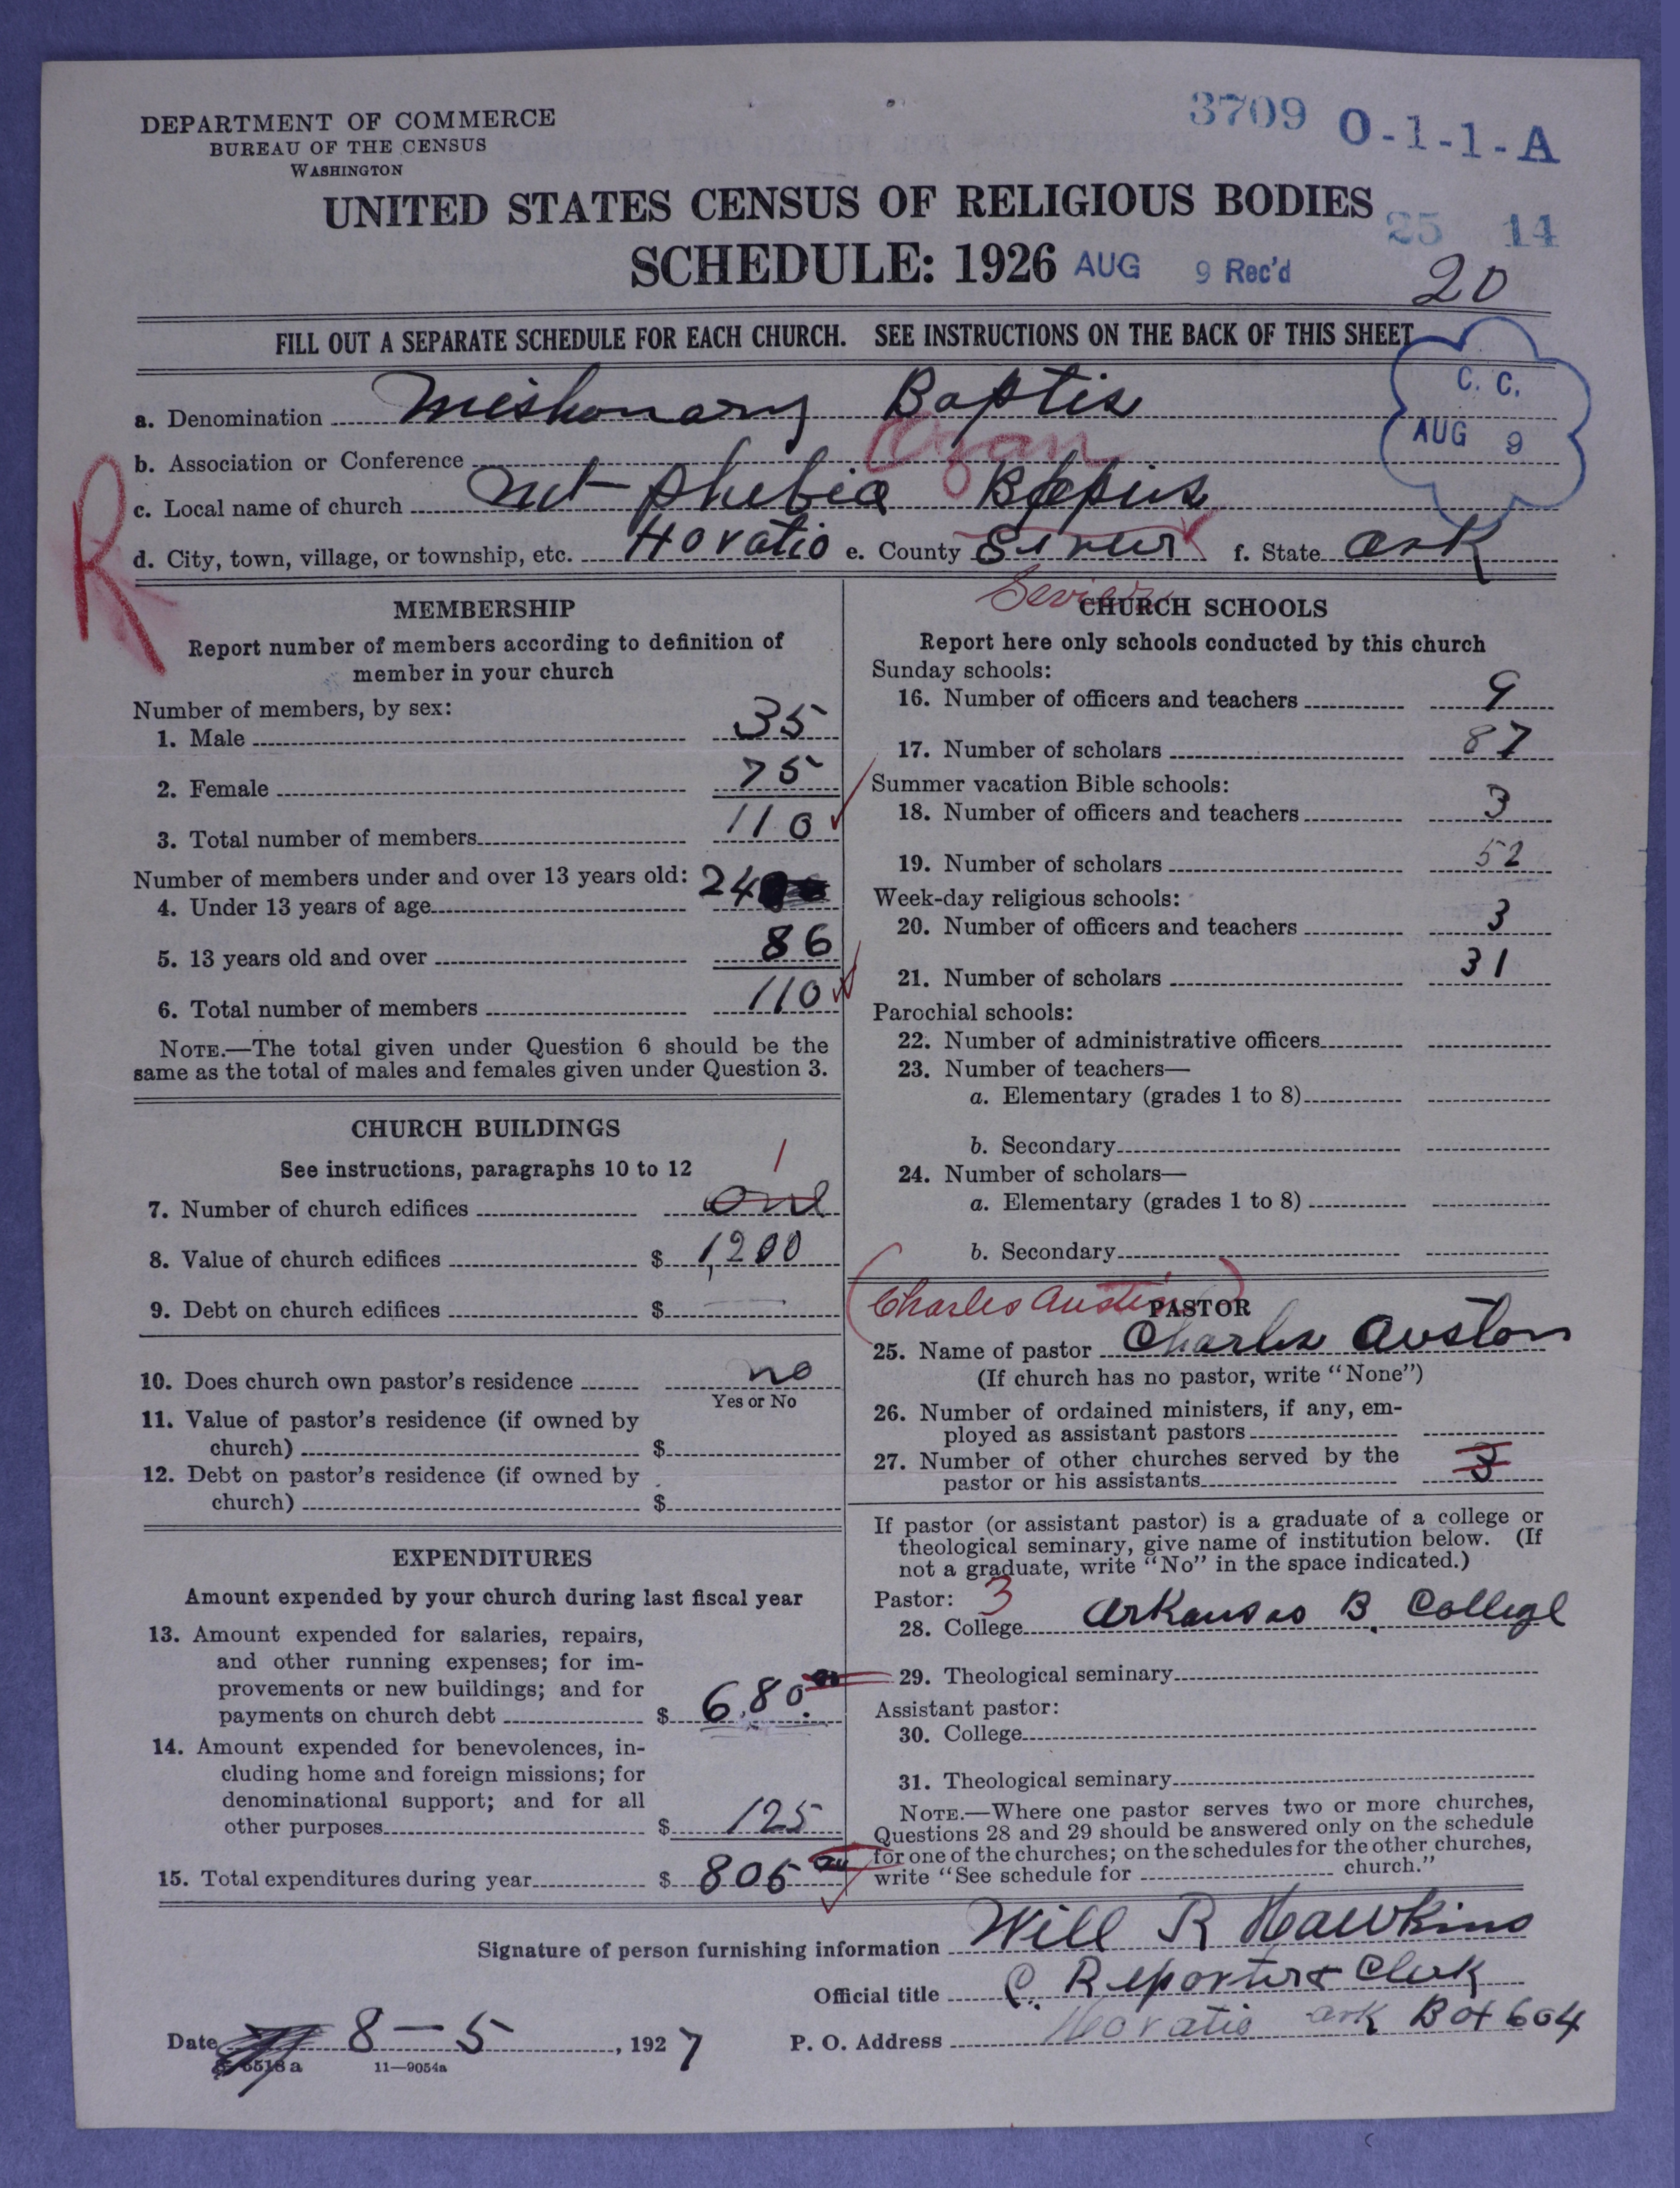 DEPARTMENT OF COMMERCE
BUREAU OF THE CENSUS
WASHINGTON
3709 O-1-1-A
UNITED STATES CENSUS OF RELIGIOUS BODIES
25 14
SCHEDULE: 1926 AUG 9 Rec'd
20
FILL OUT A SEPARATE SCHEDULE FOR EACH CHURCH. SEE INSTRUCTIONS ON THE BACK OF THIS SHEET
C. C.
AUG 9
a. Denomination Mishonary Baptis
b. Association or Conference Ozan
c. Local name of church Mt Phebia
d. City, town, village, or township, etc. Horatio e. County f. State Ark
Sevier
R
MEMBERSHIP
Report number of members according to definition of
member in your church
Number of members, by sex:
1. Male 35
2. Female 75
3. Total number of members 110
Number of members under and over 13 years old:
4. Under 13 years of age 24
5. 13 years old and over 86
6. Total number of members 110
NOTE.—The total given under Question 6 should be the
same as the total of males and females given under Question 3.
CHURCH BUILDINGS
See instructions, paragraphs 10 to 12
1
7. Number of church edifices one
8. Value of church edifices $ 1,200
9. Debt on church edifices $
10. Does church own pastor's residence no
Yes or No
11. Value of pastor's residence (if owned by
church) $
12. Debt on pastor's residence (if owned by
church) $
EXPENDITURES
Amount expended by your church during last fiscal year
13. Amount expended for salaries, repairs,
and other running expenses; for im-
provements or new buildings; and for
payments on church debt $ 680.
14. Amount expended for benevolences, in-
cluding home and foreign missions; for
denominational support; and for all
other purposes $ 125
15. Total expenditures during year $ 805
CHURCH SCHOOLS
Report here only schools conducted by this church
Sunday schools:
16. Number of officers and teachers 9
17. Number of scholars 87
Summer vacation Bible schools:
18. Number of officers and teachers 3
19. Number of scholars 52
Week-day religious schools:
20. Number of officers and teachers 3
21. Number of scholars 31
Parochial schools:
22. Number of administrative officers
23. Number of teachers—
a. Elementary (grades 1 to 8)
b. Secondary
24. Number of scholars—
a. Elementary (grades 1 to 8)
b. Secondary
(Charles Austin)
PASTOR
25. Name of pastor Charles Auston
(If church has no pastor, write "None")
26. Number of ordained ministers, if any, em-
ployed as assistant pastors
27. Number of other churches served by the
pastor or his assistants 3
If pastor (or assistant pastor) is a graduate of a college or
theological seminary, give name of institution below. (If
not a graduate, write "No" in the space indicated.)
Pastor: 3
28. College Arkansas B. College
29. Theological seminary
Assistant pastor:
30. College
31. Theological seminary
NOTE.—Where one pastor serves two or more churches,
Questions 28 and 29 should be answered only on the schedule
for one of the churches; on the schedules for the other churches,
write "See schedule for church."
Signature of person furnishing information Will R Hawkins
Official title C. Reporter & Clerk
Date 8-5, 1927 P. O. Address Horatio ark Box 604
6518 a 11—9054a